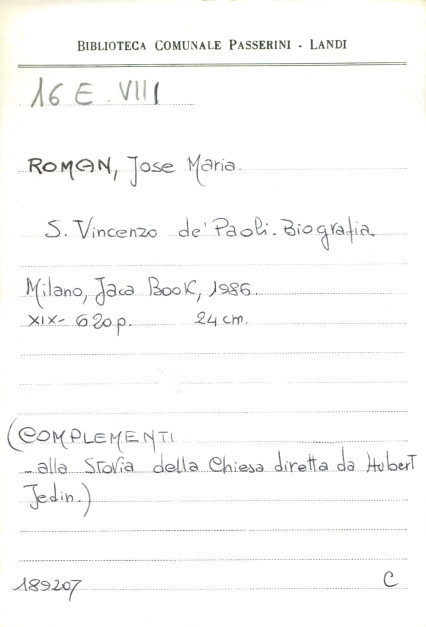 BIBLIOTECA COMUNALE PASSERINI - LANDI
16 E. VIII
ROMAN, Jose Maria.
S. Vincenzo de' Paoli. Biografia.
Milano, Jaca Book, 1986.
XIX- 620 p. 24 cm.
(COMPLEMENTI
- alla Storia della Chiesa diretta da Hubert
Jedin.)
189207 C